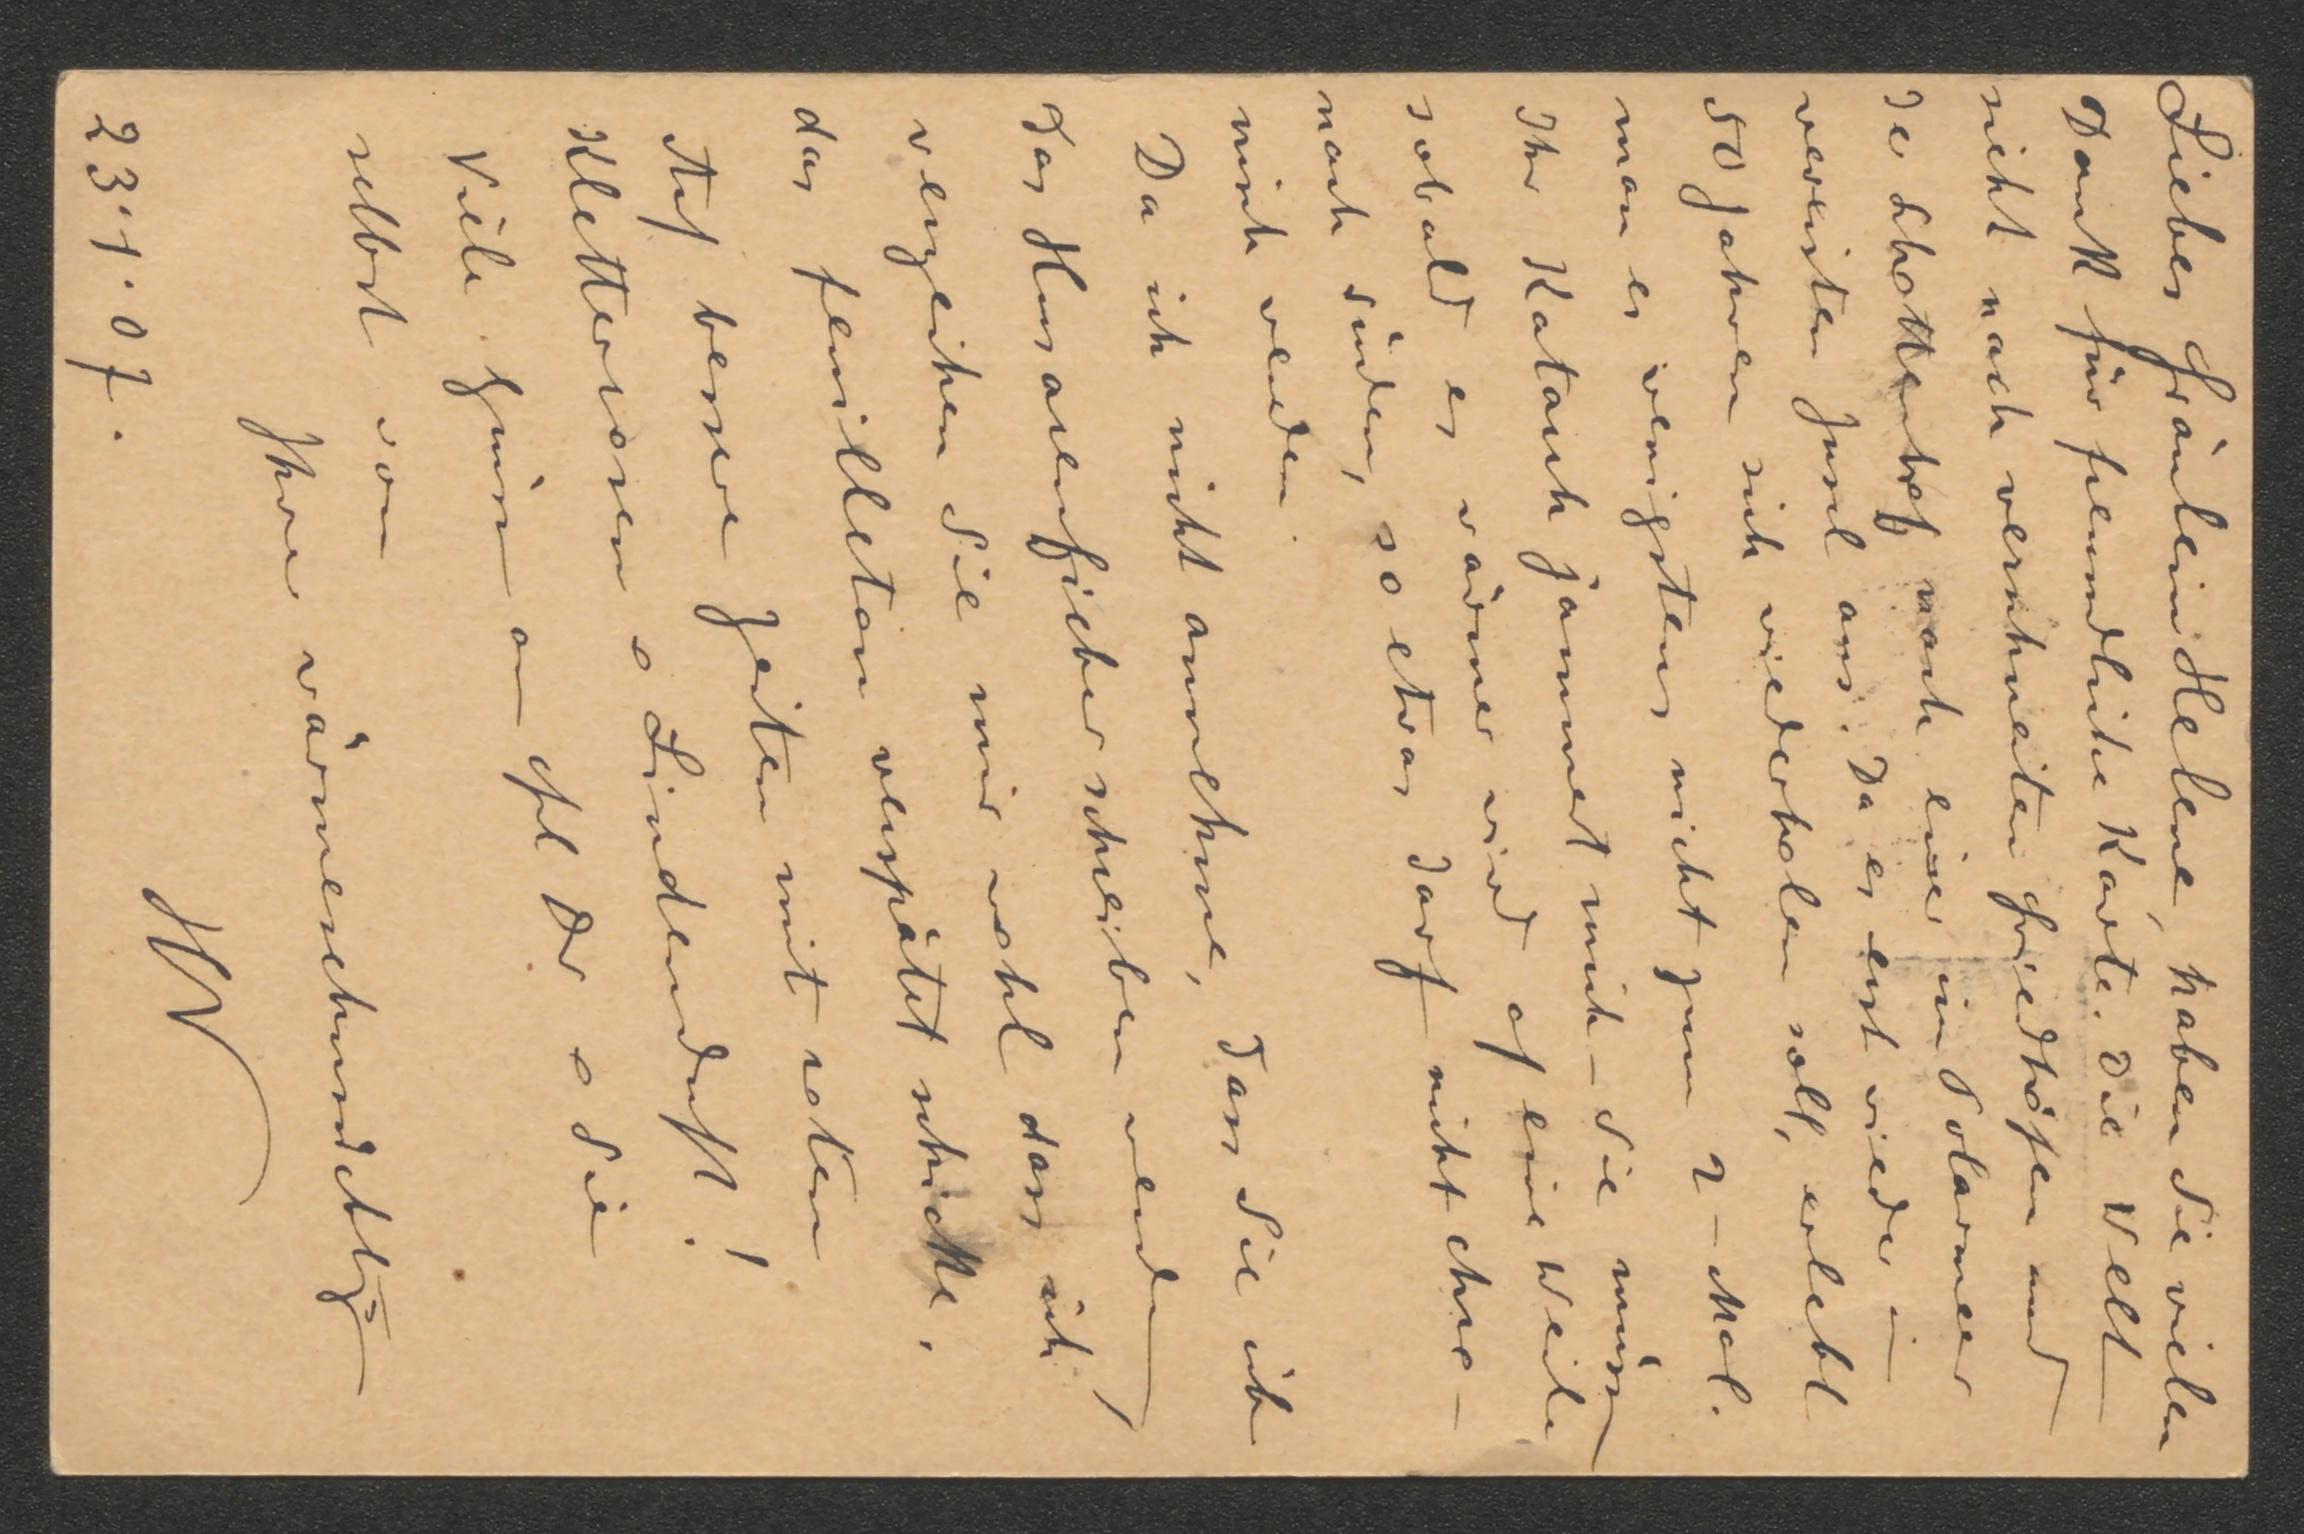 Liebes Fräulein Helene, haben Sie vielen
Dank für freundliche Karte. Die Welt
sieht nach verschneiten Friedhöfen und
der Schottenhof nach einer im Polarmeer
vereisten Insel aus. Da es erst wieder in
50 Jahren sich wiederholen soll, erlebt
man es wenigstens nicht zum 2-Mal.
Ihr Katarrh jammert mich – Sie müssen
sobald es wärmer wird auf eine Weile
nach Süden, so etwas darf nicht chro-
nisch werden.
Da ich nicht annehme, dass Sie über
das Husarenfieber schreiben werden,
verzeihen Sie mir wohl dass ich
das Feuilleton verspätet schicke.
Auf bessere Zeiten mit roten
Kletterrosen u Lindenduft!
Viele Grüsse an Frl Dr u Sie
selbst von
Ihrer wärmesehnsüchtigen
23.1.07.